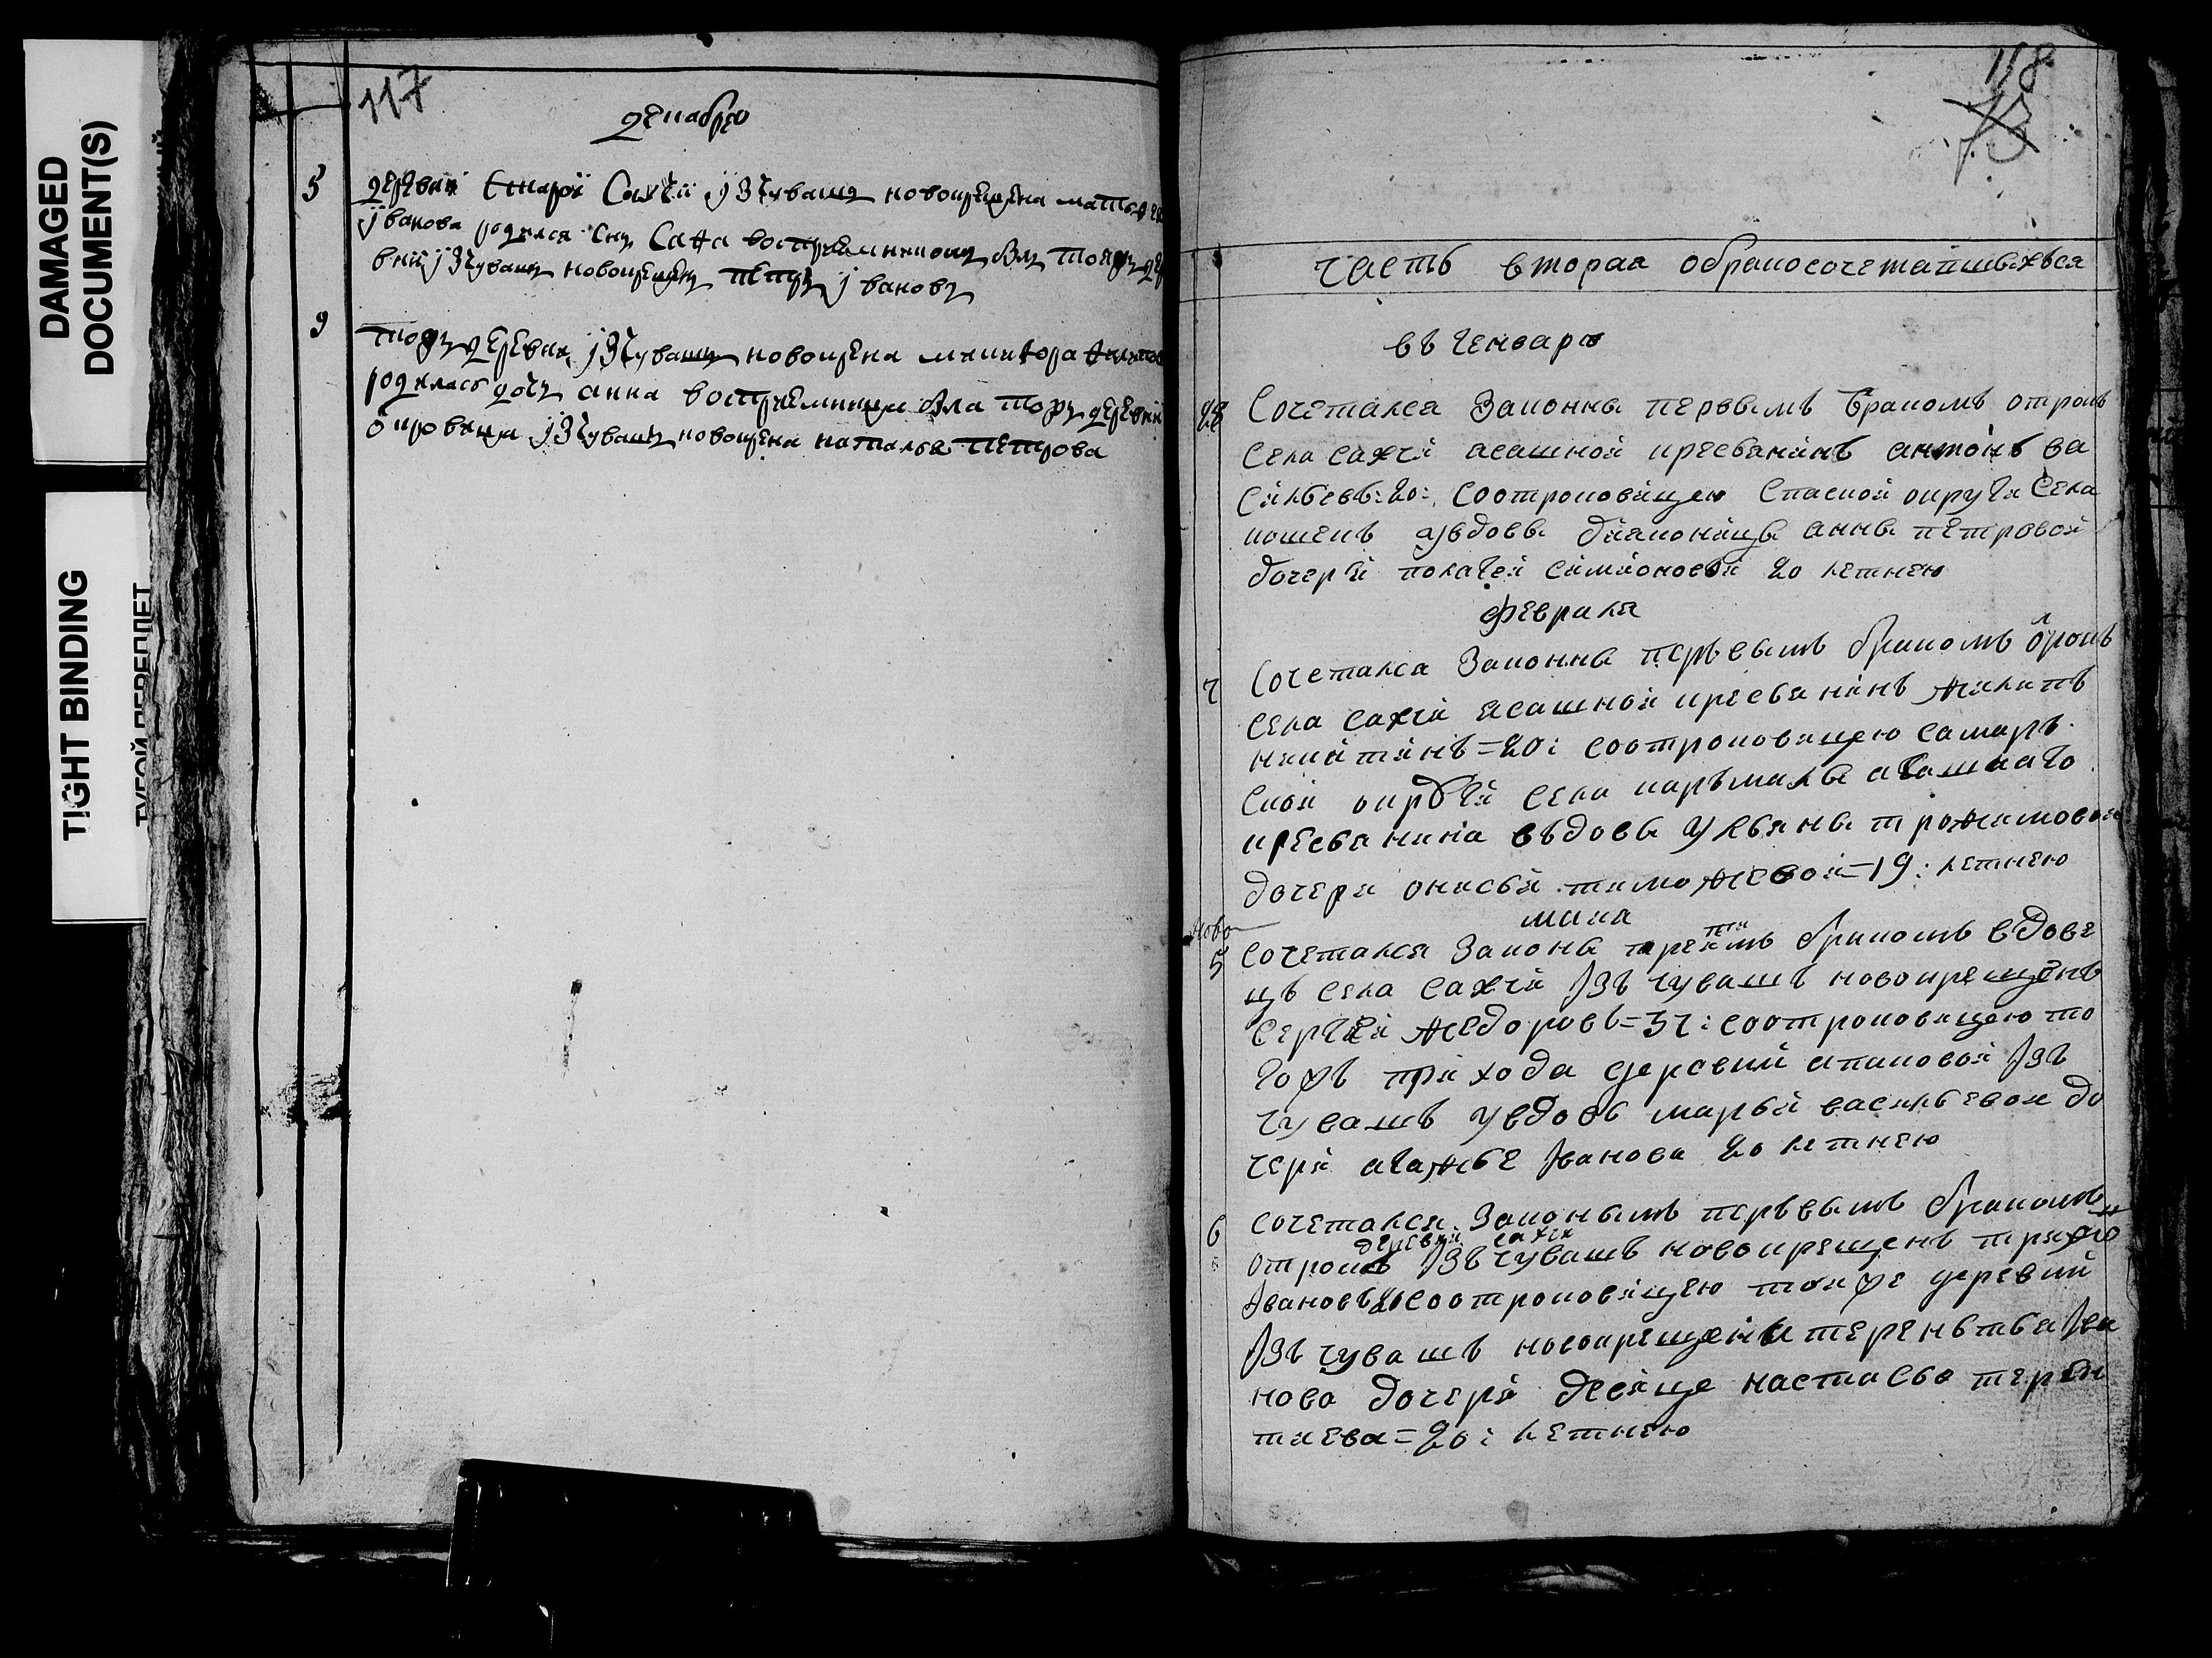 DAMAGED
DOCUMENT(S)
TIGHT BINDING
ТУГОЙ ПЕРЕПЛЕТ
117
декабрю
5 деревни Старой Сахчи ізчуваш новокрещена матвея
іванова родился сну Сава восприемникомъ был тояж де
вни ізчувашъ новокрещенъ петръ івановъ
9 тояж деревни ізчувашъ новокрена никифора
родилась дочь анна восприемница была тояж деревни
ізчувашъ новокрена наталья петрова
118
73
часть вторая обракосочетавшихъся
въ генварѣ
28 Сочетался Законны первымъ бракомъ отрокъ
села сахчи ясашной кресьянинъ антонъ ва
сильевъ: 20: соотроковицею Спаской округи села
кошекъ увдовы диаконицы анны петровой
дочерьи пелагеи симионовой 20 летнею
февраля
7 Сочетался Законны перьвымъ бракомъ ѿрокъ
села сахчи ясашной кресьянинъ филипъ
никитинъ = 20: соотроковицею самаръ
ской округи села кармалы ясашнаго
кресьянина въдовы ульяны трофимовой
дочери онисьи тимофеевой = 19: летнею
мака
5 сочетался Законы третимъ бракомъ вдове
цъ села сахчи ізъ чувашъ новокрещенъ
сергѣй федоровъ = 37: соотроковицею то
гожъ прихода деревни апаковой ізъ
чувашъ увдовъ марьи васильевой до
чери агафье іванова 20 летнею
6 сочетался Законымъ перьвымъ бракомъ
деревни сахчи
отрокъ ізъ чувашъ новокрещенъ трифо
івановъ 20 соотроковицею тояже деревни
ізъ чувашъ новокрещена терентья іва
нова дочери девице настасьо терен
тиева = 20: летнею